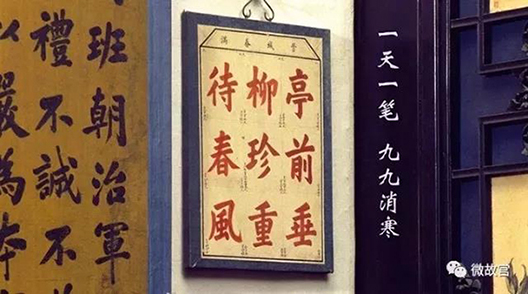 一天一笔 九九消寒
管城春滿
亭前垂
柳珍重
待春風
班朝治軍
禮不誠不
嚴為本
微故宫